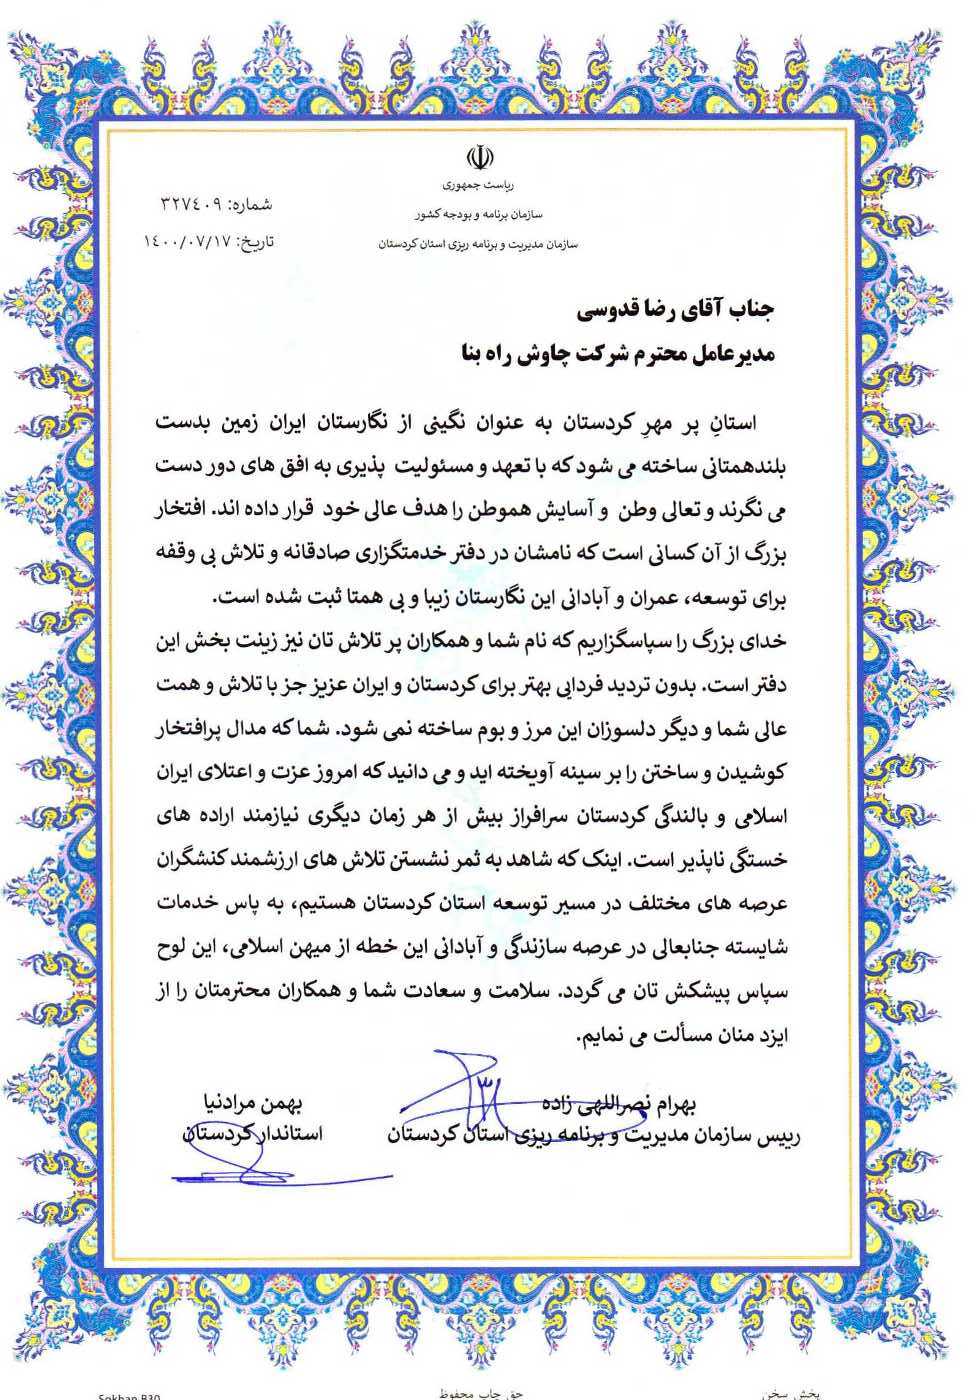 ریاست جمهوری
سازمان برنامه و بودجه کشور
سازمان مدیریت و برنامه ریزی استان کردستان
شماره: ٣٢٧٤٠٩
تاریخ: ١٤٠٠/٠٧/١٧
جناب آقای رضا قدوسی
مدیرعامل محترم شرکت چاوش راه بنا
استانِ پر مهرِ کردستان به عنوان نگینی از نگارستان ایران زمین بدست
بلندهمتانی ساخته می شود که با تعهد و مسئولیت پذیری به افق های دور دست
می نگرند و تعالی وطن و آسایش هموطن را هدف عالی خود قرار داده اند. افتخار
بزرگ از آن کسانی است که نامشان در دفتر خدمتگزاری صادقانه و تلاش بی وقفه
برای توسعه، عمران و آبادانی این نگارستان زیبا و بی همتا ثبت شده است.
خدای بزرگ را سپاسگزاریم که نام شما و همکاران پر تلاش تان نیز زینت بخش این
دفتر است. بدون تردید فردایی بهتر برای کردستان و ایران عزیز جز با تلاش و همت
عالی شما و دیگر دلسوزان این مرز و بوم ساخته نمی شود. شما که مدال پرافتخار
کوشیدن و ساختن را بر سینه آویخته اید و می دانید که امروز عزت و اعتلای ایران
اسلامی و بالندگی کردستان سرافراز بیش از هر زمان دیگری نیازمند اراده های
خستگی ناپذیر است. اینک که شاهد به ثمر نشستن تلاش های ارزشمند کنشگران
عرصه های مختلف در مسیر توسعه استان کردستان هستیم، به پاس خدمات
شایسته جنابعالی در عرصه سازندگی و آبادانی این خطه از میهن اسلامی، این لوح
سپاس پیشکش تان می گردد. سلامت و سعادت شما و همکاران محترمتان را از
ایزد منان مسألت می نمایم.
بهرام نصراللهی زاده
رییس سازمان مدیریت و برنامه ریزی استان کردستان
بهمن مرادنیا
استاندار کردستان
پخش سخن
حق چاپ محفوظ
Sokhan B30